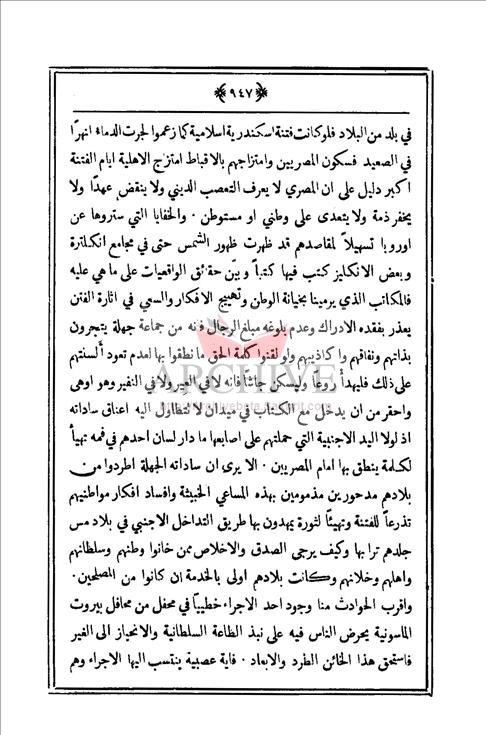 ﴿٩٤٧﴾
في بلد من البلاد فلو كانت فتنة اسكندرية اسلامية كما زعموا لجرت الدماء انهرًا
في الصعيد فسكون المصريين وامتزاجهم بالاقباط امتزج الاهلية ايام الفتنة
اكبر دليل على ان المصري لا يعرف التعصب الديني ولا ينقض عهدًا ولا
يخفر ذمة ولا يتعدى على وطني او مستوطن ٠ والخفايا التي ستروها عن
اوروبا تسهيلاً لمقاصدهم قد ظهرت ظهور الشمس حتى في مجامع انكلترة
وبعض الانكليز كتب فيها كتباً وبيّن حقائق الواقعيات على ما هي عليه
فالمكاتب الذي يرمينا بخيانة الوطن وتهييج الافكار والسعي في اثارة الفتن
يعذر بفقده الادراك وعدم بلوغه مبلغ الرجال فانه من جماعة جهلة يتجرون
بذاتهم ونفاقهم واكاذيبهم ولو لقنوا كلمة الحق ما نطقوا بها لعدم تعود ألسنتهم
على ذلك فليهدأ روعاً وليسكن جاشاً فانه لا في العير ولا في النفير وهو اوهى
واحقر من ان يدخل مع الكتاب في ميدان لا تتطاول اليه اعناق ساداته
اذ لولا اليد الاجنبية التي حملتهم على اصابعها ما دار لسان احدهم في فمه تهيأ
لكلمة ينطق بها امام المصريين ٠ الا يرى ان ساداته الجهلة اطردوا من
بلادهم مدحورين مذمومين بهذه المساعي الخبيثة وافساد افكار مواطنيهم
تذرعاً للفتنة وتهيئاً لثورة يمهدون بها طريق التداخل الاجنبي في بلاد مس
جلدهم ترابها وكيف يرجى الصدق والاخلاص ممن خانوا وطنهم وسلطانهم
واهلهم وخلانهم وكانت بلادهم اولى بالخدمة ان كانوا من المصلحين ٠
واقرب الحوادث منا وجود احد الاجراء خطيبًا في محفل من محافل بيروت
الماسونية يحرض الناس فيه على نبذ الطاعة السلطانية والانحياز الى الغير
فاستحق هذا الخائن الطرد والابعاد ٠ فاية عصبية ينتسب اليها الاجراء وهم
ARCHIVE